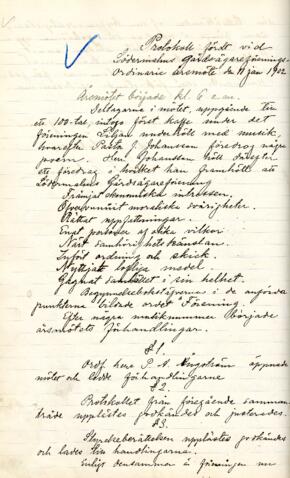 Protokoll fördt vid
Södermalms Gårdsägareförenings
Ordinarie årsmöte den 11 jan 1902
Årsmötet började kl. 6 e.m.
Deltagarna i mötet, uppgående till
ett 100-tal intogo först kaffe under det
föreningen Liljan underhöll med musik
hvarefter J. Johansson föredrog några
poem. Herr Johansson höll därefter
ett föredrag i hvilket han framhöll att
Södermalms Gårdsägareförening
Främjat ekonomiska intressen.
Öfvervunnit moraliska svårigheter.
Rättat uppfattningar.
Enat personer af olika vilkor.
Närt samhörighetskänslan.
Infört ordning och skick.
Nyttjat lofliga medel.
Gagnat samhället i sin helhet.
Begynnelsebokstäfverna i de anförda
punkterna bildade ordet "Förening".
Efter några musiknummer började
årsmötets förhandlingar.
§1.
Ordf. herr P. A. Engström öppnade
mötet och ledde förhandlingarne
§2.
Protokollet från föregående samman
träde upplästes godkändes och justerades.
§3.
Styrelseberättelsen upplästes godkändes
och lades till handlingarna.
Enligt densamma är föreningen nu